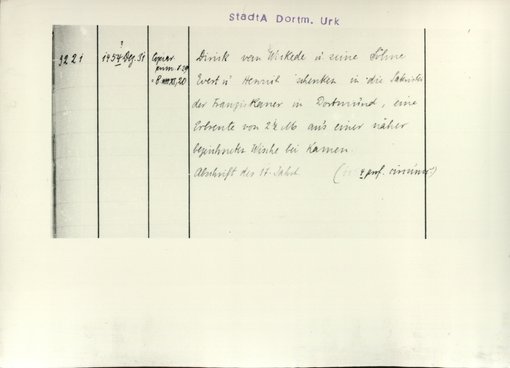 StadtA Dortm. Urk
3221 1454 Dez. 31 Copiar
Dirick van Wickede u seine Söhne
Evert u Henrich schenken in die Sakristei
der Franziskaner in Dortmund, eine
Erbrente von 2½ M aus einer näher
bezeichneten Wische bei Kamen.
Abschrift des 17. Jahrh